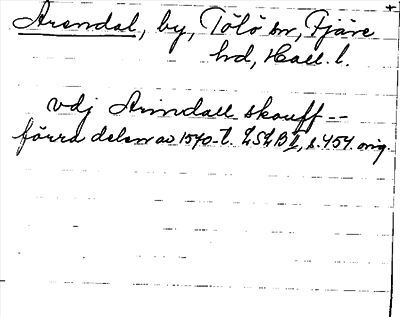 Arendal, by, Tölö sn, Fjäre
hd, Hall. l.
vdj Arindall skouff --
förra delen av 1540-t. LSLB I, s. 454. orig.